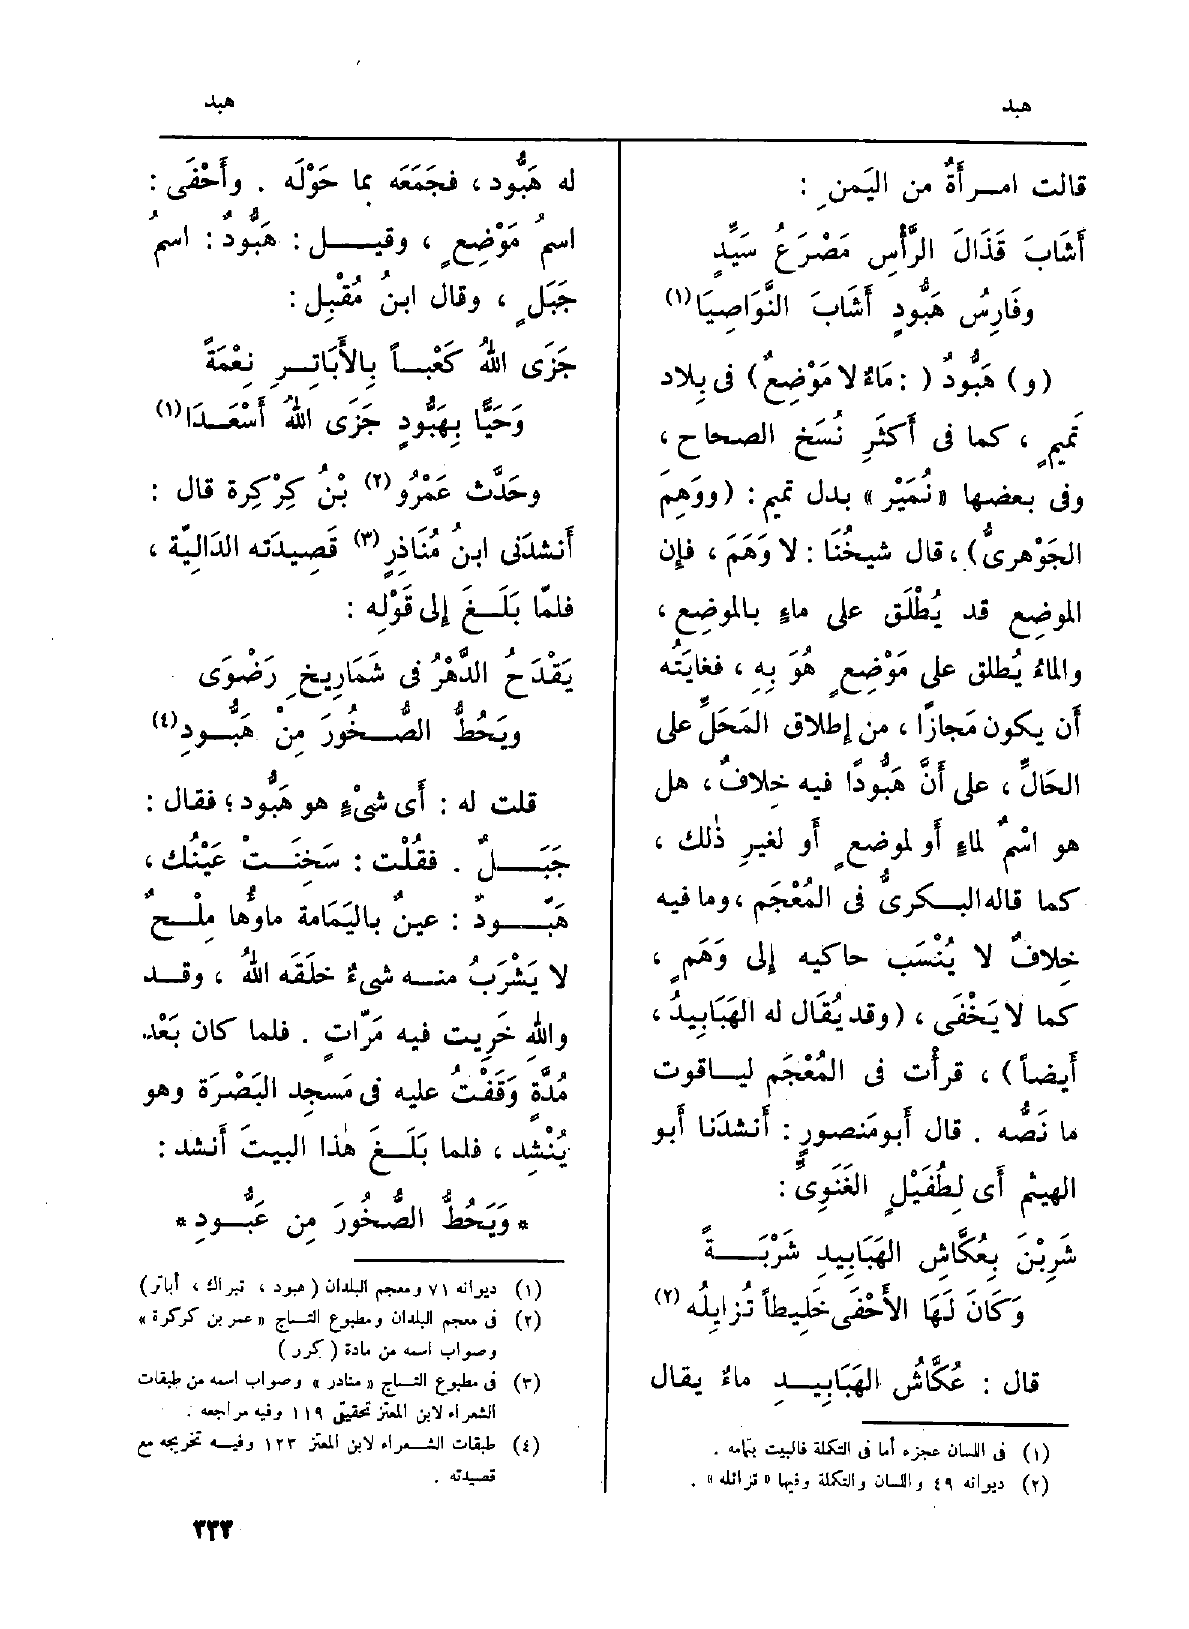 هبد
هبد
قالت امـرأَةٌ من اليَمنِ :
أَشَابَ قَذَالَ الرَّأْسِ مَصْرَعُ سَيِّدٍ
وفَارِسُ هَبُّودٍ أَشَابَ النَّوَاصِيَا(١)
(و) هَبُّودٌ ( : مَاءٌ لا مَوْضِعٌ) فى بِلاد
تَمِيمٍ ، كما فى أَكثَرِ نُسَخ الصحاح ،
وفى بعضها «نُمَيْر» بدل تميم : (ووَهِمَ
الجَوْهرىُّ) ، قال شيخُنَا : لا وَهَمَ ، فإِن
الموضِع قد يُطْلَق على ماءٍ بالموضِع ،
والماءُ يُطلق على مَوْضِعٍ هُوَ بِهِ ، فغايَتُه
أَن يكون مَجازًا ، من إِطلاق المَحَلِّ على
الحَالِّ ، على أَنَّ هَبُّودًا فيه خِلافٌ ، هل
هو اسْمٌ لماءٍ أَو لموضعٍ أَو لغيرِ ذٰلك ،
كما قاله البـكرىُّ فى المُعْجَم ، وما فيه
خِلافٌ لا يُنْسَب حاكيه إِلى وَهَمٍ ،
كما لا يَخْفَى ، (وقد يُقَال له الهَبَابِيدُ ،
أَيضاً) ، قرأْت فى المُعْجَم ليـاقوت
ما نَصُّه . قال أَبو منصورٍ : أَنشدَنا أَبو
الهيثم أَى لِطُفَيْلٍ الغَنَوِىِّ :
شَرِبْنَ بِعُكَّاشِ الهَبَابِيدِ شَرْبَـــةً
وَكَانَ لَهَا الأَحْفَى خَلِيطاً تُزايِلُه (٢)
قال : عُكَّاشُ الهَبَابِيــدِ ماءٌ يقال
(١) فى اللسان عجزه أما فى التكملة فالبيت بتمامه .
(٢) ديوانه ٤٩ واللسان والتكملة وفيها «تزائله» .
له هَبُّود ، فجَمَعَه بما حَوْلَه . وأَحْفَى :
اسمُ مَوْضِعٍ ، وقيــل : هَبُّودٌ : اسمُ
جَبَلٍ ، وقال ابنُ مُقْبِل :
جَزَى اللهُ كَعْبـاً بِالأَبَاتِـرِ نِعْمَةً
وَحَيًّا بِهَبُّودٍ جَزَى اللهُ أَسْعَـدَا(١)
وحَدَّث عَمْرُو (٢) بْنُ كِرْكِرة قال :
أَنشدَنى ابنُ مُنَاذِرٍ (٣) قَصِيدَته الدَالِيَّة ،
فلمَّا بَلَـغَ إِلى قَوْلِه :
يَقْدَحُ الدَّهْرُ فى شَمَارِيخِ رَضْوَى
ويَحُطُّ الصُّـخُورَ مِنْ هَبُّـودِ(٤)
قلت له : أَى شىْءٍ هو هَبُّود ؟ فقال :
جَبَــلٌ . فقُلْت : سَخِنَـتْ عَيْنُك ،
هَبُّــودٌ : عينٌ باليَمَامة ماؤُها مِلْـحٌ
لا يَشْرَبُ منـه شىءٌ خلَقَه اللهُ ، وقـد
واللهِ خَرِيت فيه مَرّاتٍ . فلما كان بَعْد
مُدَّةٍ وَقَفْتُ عليه فى مَسجِد البَصْرَة وهو
يُنْشِد ، فلما بَلَـغَ هٰذا البيتَ أَنشد :
* وَيَحُطُّ الصُّخُورَ مِن عَبُّـودِ *
(١) ديوانه ٧١ ومعجم البلدان (هبود ، تبراك ، أباتر)
(٢) فى معجم البلدان ومطبوع التـاج «عمر بن كركرة»
وصواب اسمه من مادة (كرر)
(٣) فى مطبوع التـاج «منادر» وصواب اسمه من طبقات
الشعراء لابن المعتز تحقيق ١١٩ وفيه مراجعه .
(٤) طبقات الشعراء لابن المعتز ١٢٣ وفيــه تخريجه مع
قصيدته .
٣٣٣